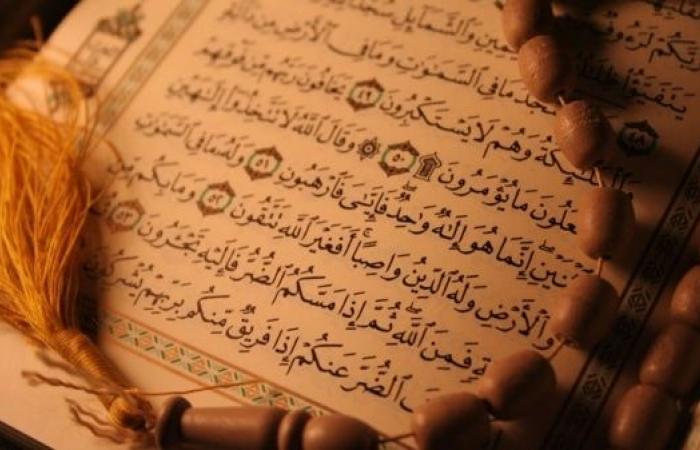 رَبَّكُمْ لَرَءُوفٌ
يَتَفَيَّؤُا۟ ظِلَٰلُهُۥ ٱلْيَمِينِ وَٱلشَّمَآئِلِ سُجَّدًا
٤٨ يَسْجُدُ مَا فِى ٱلسَّمَٰوَٰتِ وَمَا فِى ٱلْأَرْضِ مِن دَآبَّةٍ
وَٱلْمَلَٰٓئِكَةُ وَهُمْ لَا يَسْتَكْبِرُونَ ٤٩ يَخَافُونَ رَبَّهُم مِّن فَوْقِهِمْ
وَيَفْعَلُونَ مَا يُؤْمَرُونَ ۩ ٥٠ ۞ وَقَالَ ٱللَّهُ لَا تَتَّخِذُوٓا۟ إِلَٰهَيْنِ
ٱثْنَيْنِ إِنَّمَا هُوَ إِلَٰهٌ وَٰحِدٌ فَإِيَّٰىَ فَٱرْهَبُونِ ٥١ وَلَهُۥ مَا فِى ٱلسَّمَٰوَٰتِ
وَٱلْأَرْضِ وَلَهُ ٱلدِّينُ وَاصِبًا أَفَغَيْرَ ٱللَّهِ تَتَّقُونَ ٥٢ وَمَا بِكُم مِّن
فَمِنَ ٱللَّهِ ثُمَّ إِذَا مَسَّكُمُ ٱلضُّرُّ فَإِلَيْهِ تَجْـَٔرُونَ ٥٣
ٱلضُّرَّ عَنكُمْ إِذَا فَرِيقٌ مِّنكُم بِرَبِّهِمْ يُشْرِكُونَ